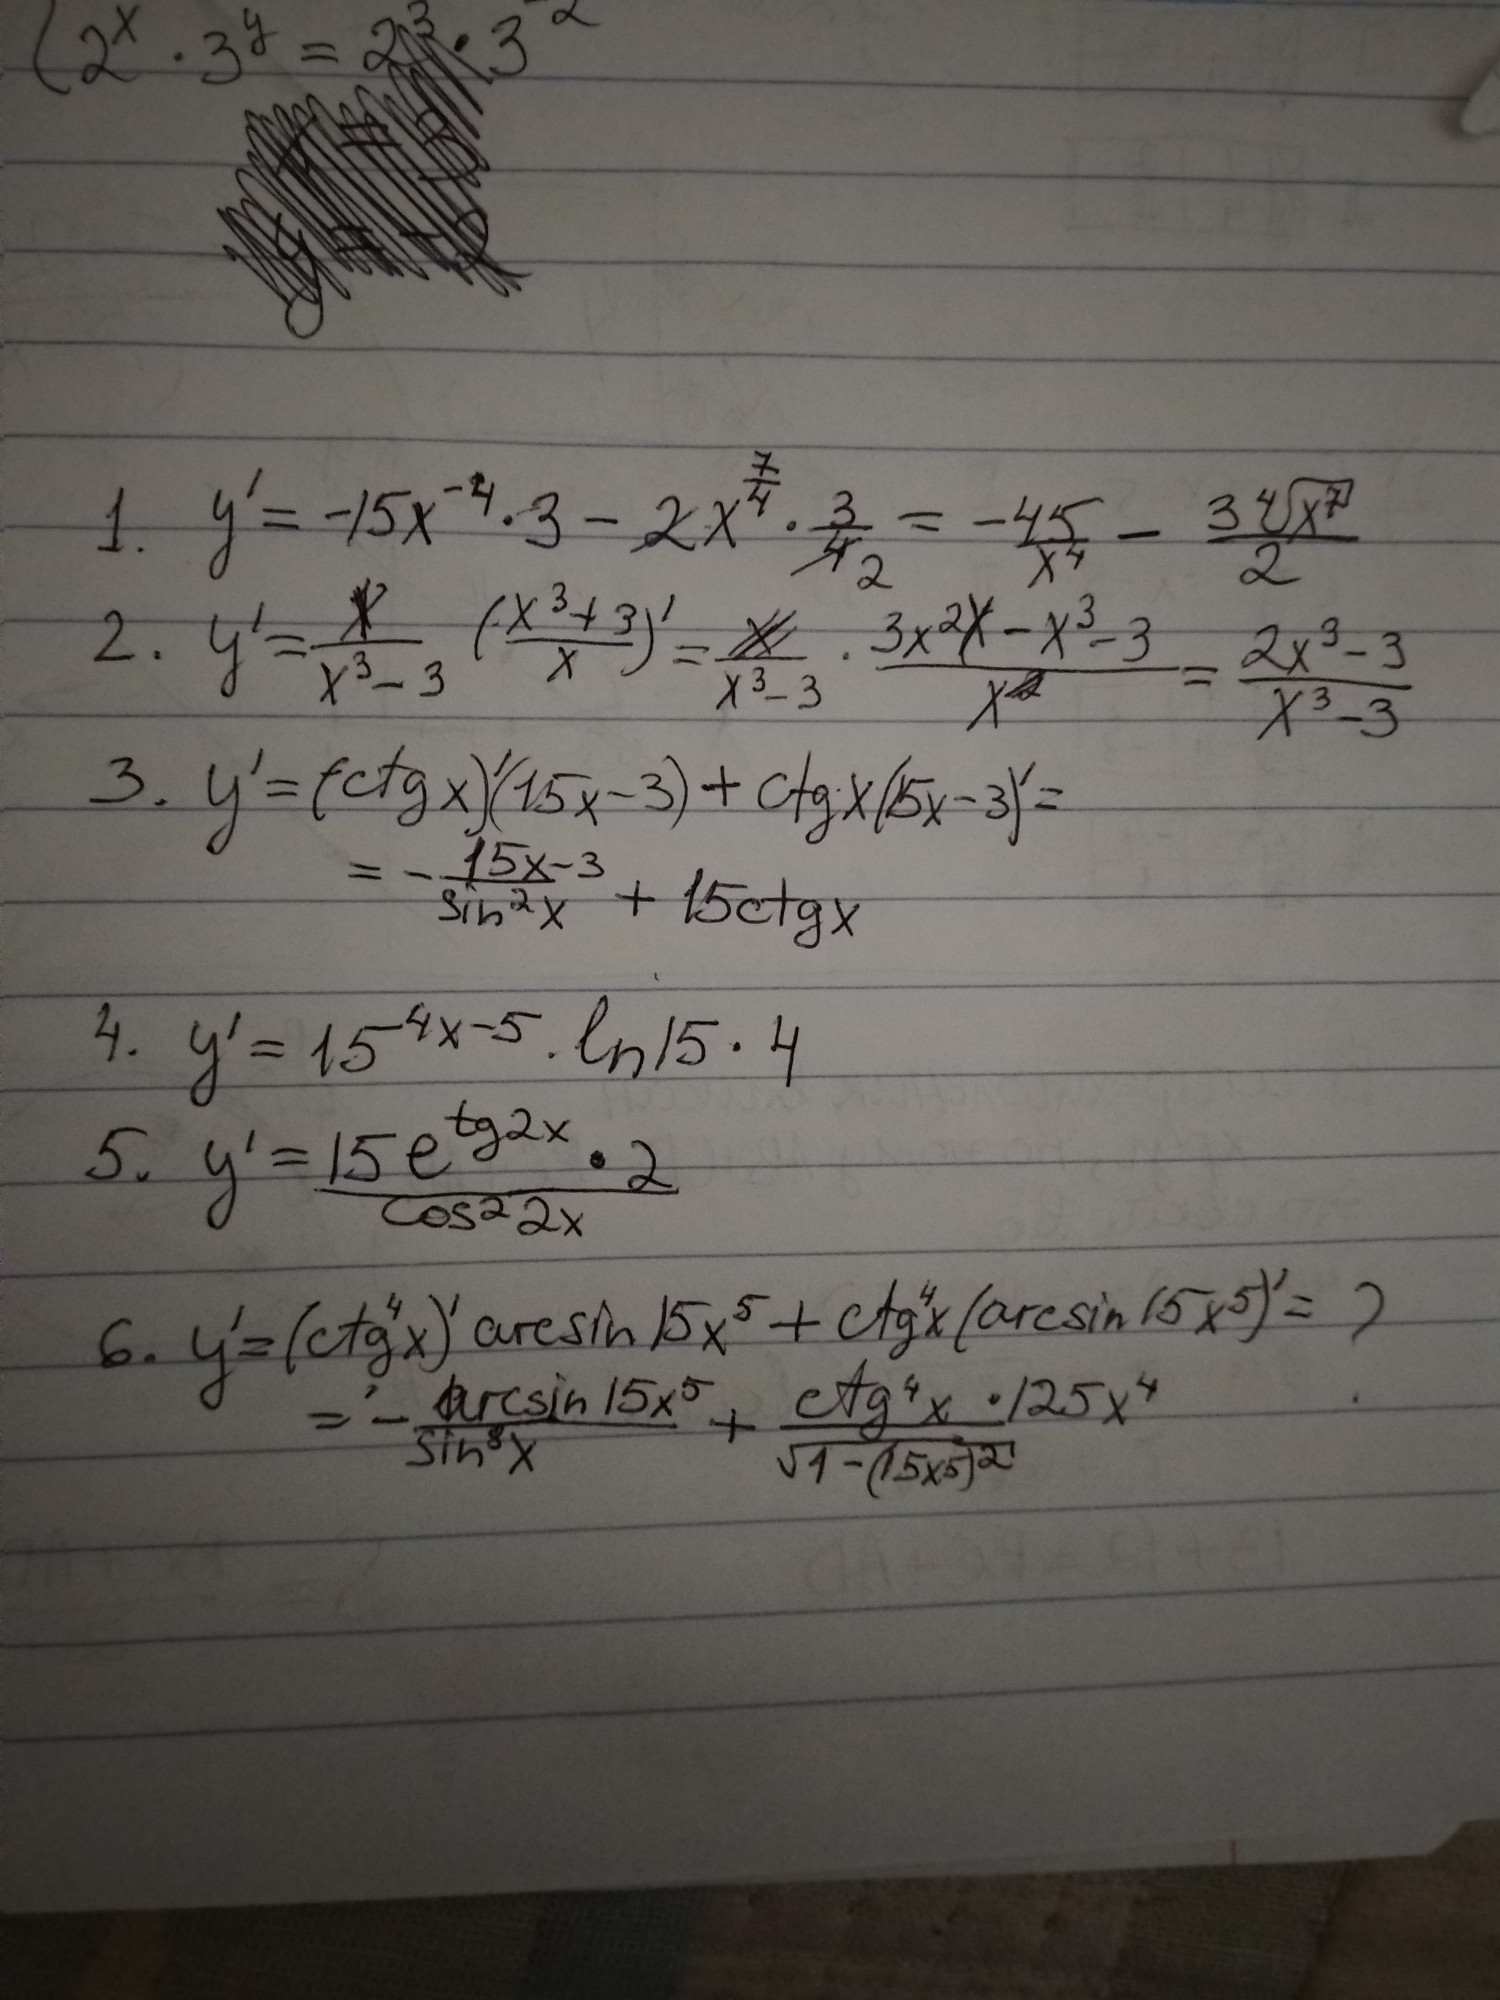 {2^x · 3^y = 2^3 · 3^-2
1. y' = -15x^-4 · 3 - 2x^(7/4) · 3/4 2 = -45/x^4 - 3⁴√x^7/2
2. y' = x/(x^3-3) (x^3+3/x)' = x/(x^3-3) · (3x^2x - x^3 - 3)/x^2 = (2x^3-3)/(x^3-3)
3. y' = (ctg x)'(15x-3) + ctg x(15x-3)' =
= - (15x-3)/(sin^2 x) + 15ctg x
4. y' = 15^(4x-5) · ln15 · 4
5. y' = (15e^(tg2x) · 2)/(cos^2 2x)
6. y' = (ctg^4 x)' arcsin 15x^5 + ctg^4 x (arcsin 15x^5)' = ?
= - (arcsin 15x^5)/(sin^8 x) + (ctg^4 x · 125x^4)/√(1-(15x^5)^2)